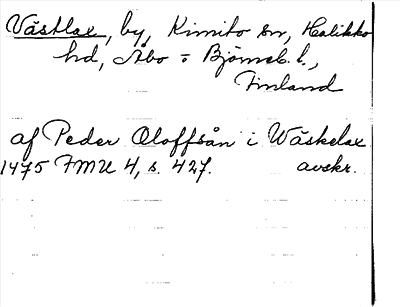 Västlax, by, Kimito sn, Halikko
hd, Åbo = Björneb. l.,
Finland
af Peder Oloffsån i Wäskelax
1475 FMU 4, s. 427. avskr.